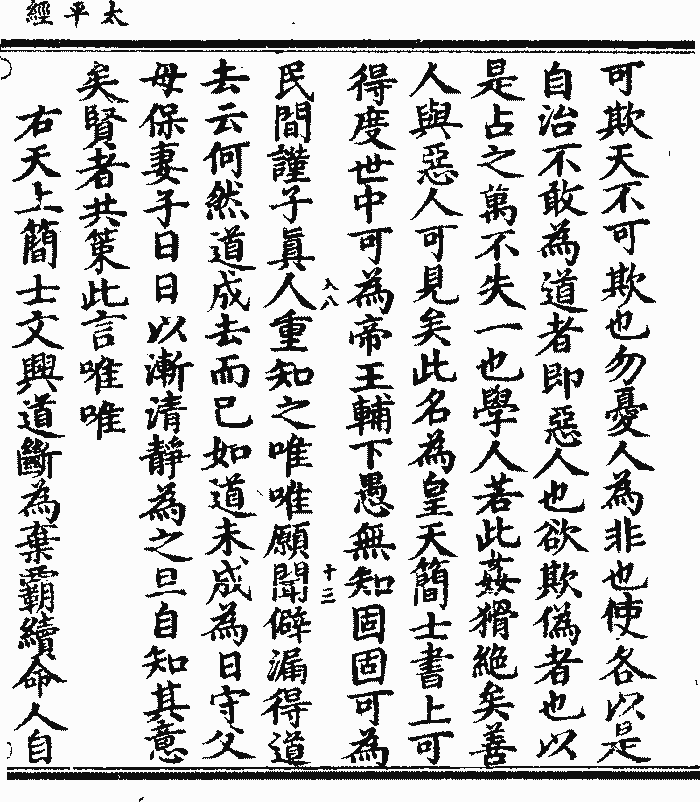 太平經
可欺天不可欺也勿憂人為非也使各以是
自治不敢為道者即惡人也欲欺偽者也以
是占之萬不失一也學人若此姦猾絕矣善
人與惡人可見矣此名為皇天簡士書上可
得度世中可為帝王輔下愚無知固固可為
民間謹子真人重知之唯唯願聞僻漏得道
去云何然道成去而已如道未成為日守父
母保妻子日日以漸清靜為之旦自知其意
矣賢者共策此言唯唯
右天上簡士文興道斷為棄霸續命人自
入八
十三